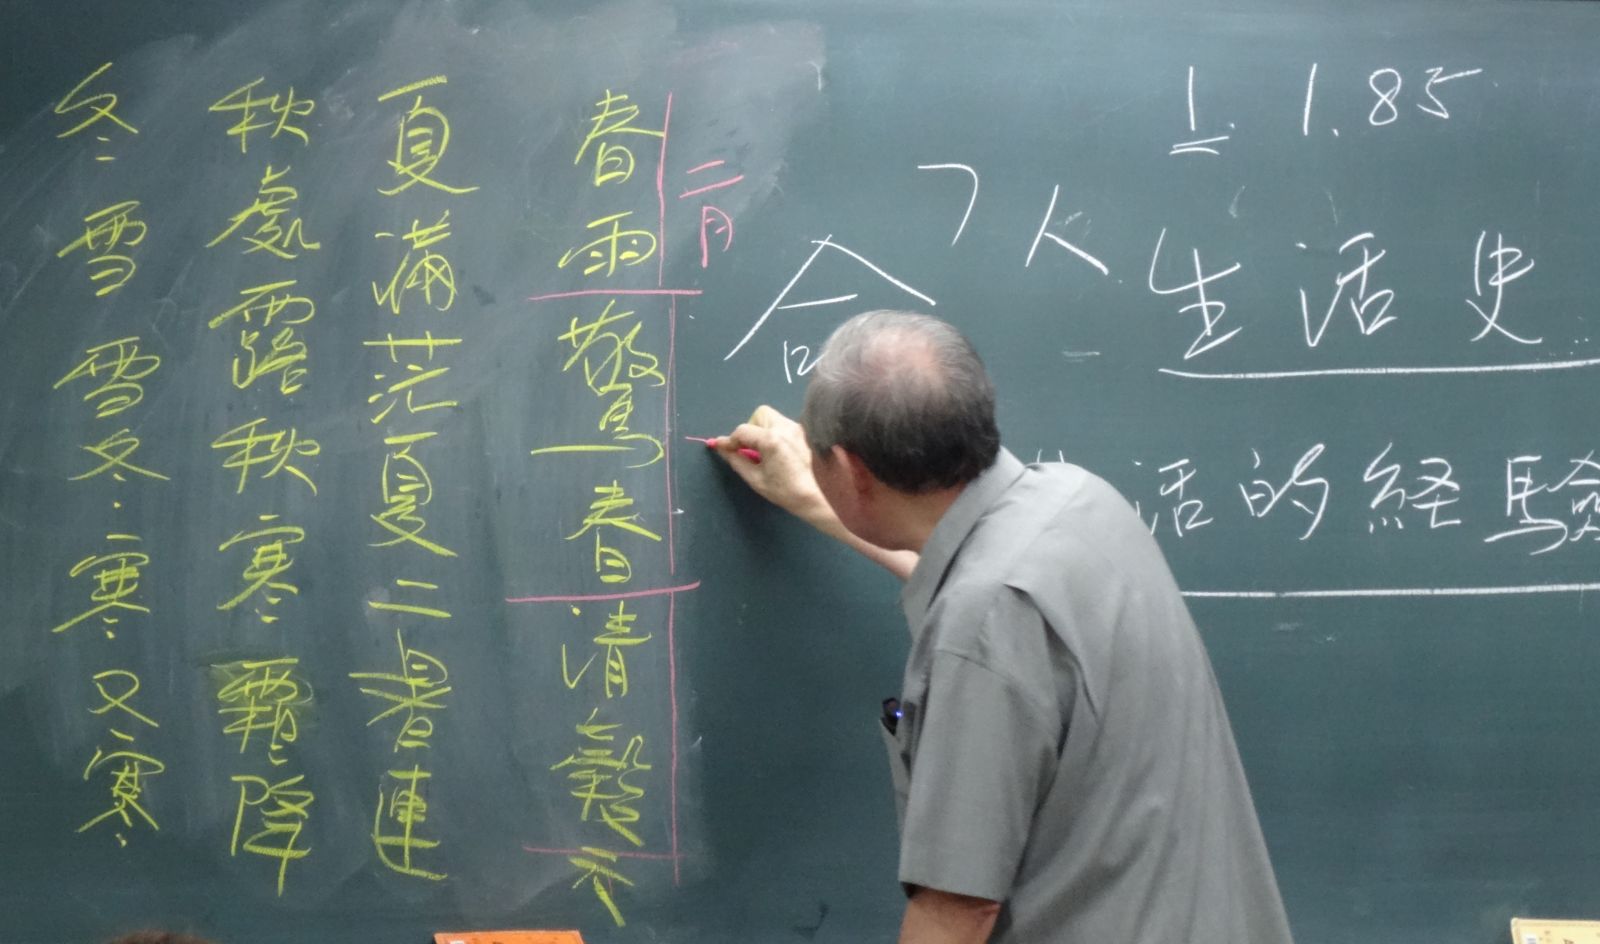 1. 1.85
人
生活史
活的経験
二月
春雨驚春清穀天
夏滿茫夏二暑連
秋處露秋寒霜降
冬雪雪冬寒又寒